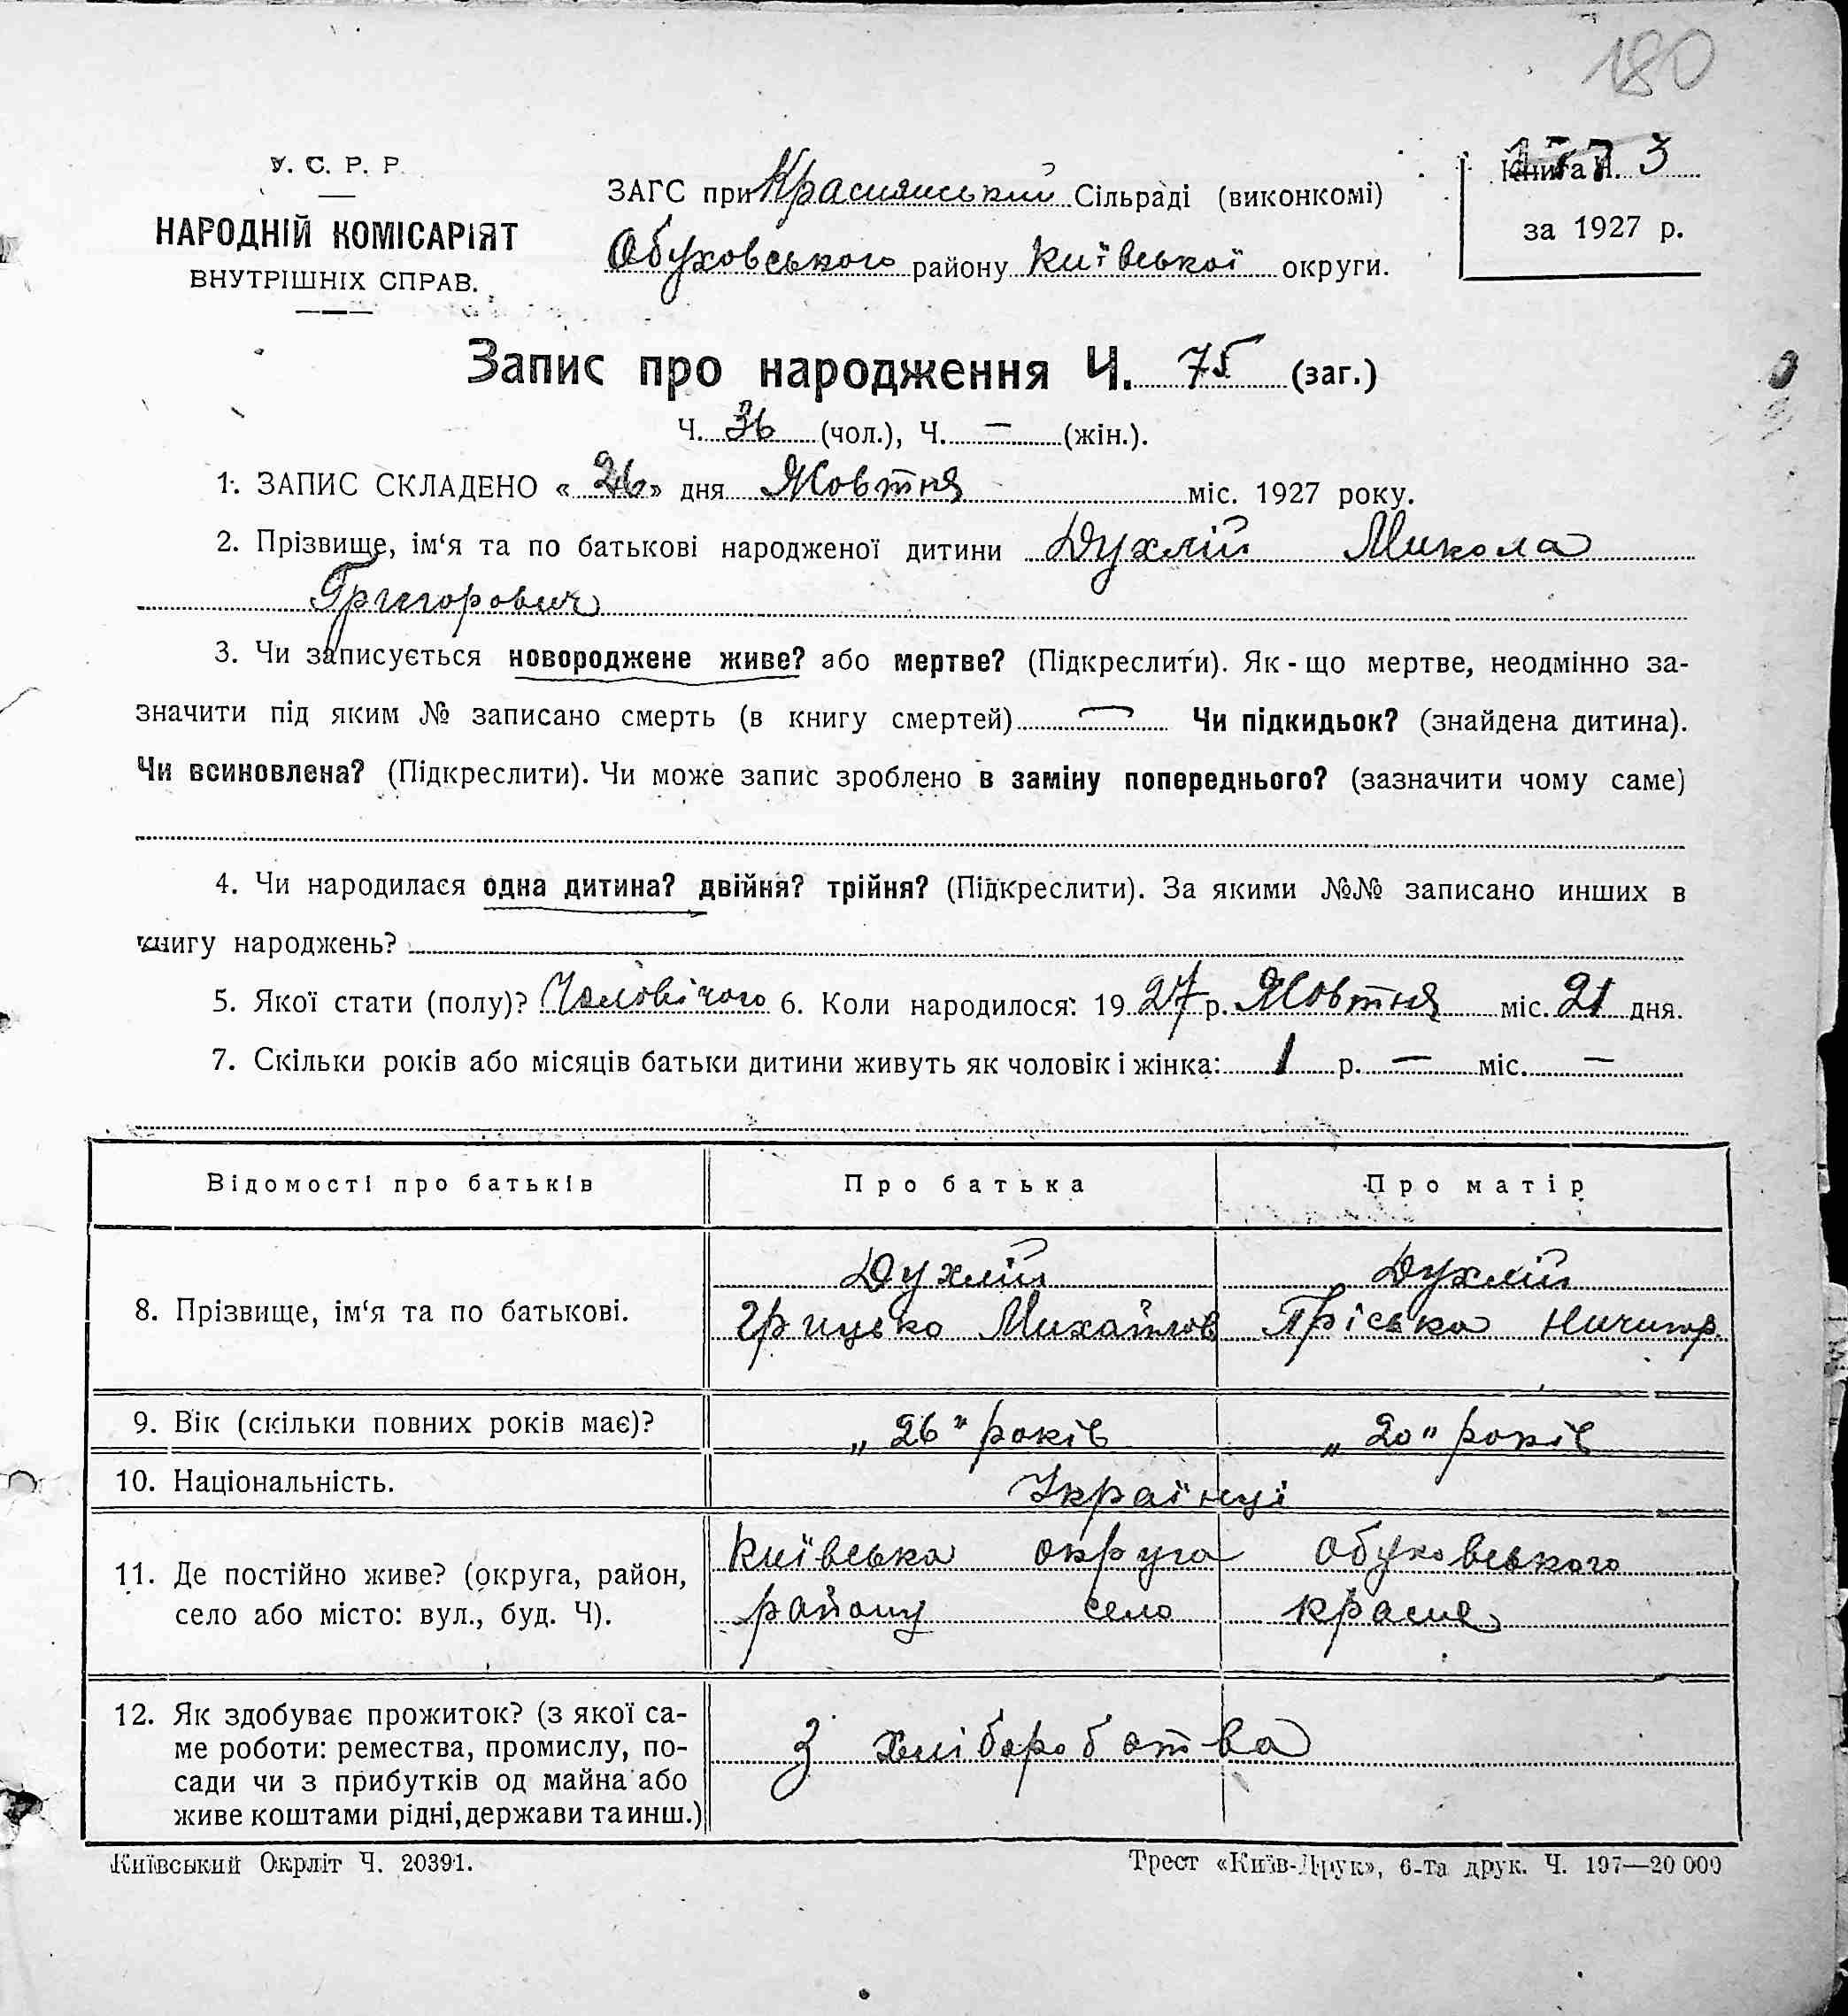 180
У. С. Р. Р.
НАРОДНІЙ КОМІСАРІЯТ
ВНУТРІШНІХ СПРАВ.
ЗАГС при Краснянській Сільраді (виконкомі)
Обуховського району Київської округи.
Книга Ч. 3
за 1927 р.
Запис про народження Ч. 75 (заг.)
Ч. 36 (чол.), Ч. — (жін.).
1. ЗАПИС СКЛАДЕНО « 26 » дня Жовтня міс. 1927 року.
2. Прізвище, ім‘я та по батькові народженої дитини Духлій Микола
Григорович
3. Чи записується новороджене живе? або мертве? (Підкреслити). Як-що мертве, неодмінно за-
значити під яким № записано смерть (в книгу смертей) — Чи підкидьок? (знайдена дитина).
Чи всиновлена? (Підкреслити). Чи може запис зроблено в заміну попереднього? (зазначити чому саме)
4. Чи народилася одна дитина? двійня? трійня? (Підкреслити). За якими №№ записано инших в
книгу народжень?
5. Якої стати (полу)? Чоловічого 6. Коли народилося: 19 27 р. Жовтня міс. 21 дня.
7. Скільки років або місяців батьки дитини живуть як чоловік і жінка: 1 р. — міс. —
Відомості про батьків Про батька Про матір
Духлій Духлій
8. Прізвище, ім‘я та по батькові. Грицько Михайлов Пріська Ничипор.
9. Вік (скільки повних років має)? „ 26 " років „ 20 " років
10. Національність. Українці
Київська округа Обуховського
11. Де постійно живе? (округа, район,
село або місто: вул., буд. Ч). району село Красне
12. Як здобуває прожиток? (з якої са-
ме роботи: ремества, промислу, по- З хліборобства
сади чи з прибутків од майна або
живе коштами рідні, держави та инш.)
Київський Окрліт Ч. 20391. Трест «Київ-Друк», 6-та друк. Ч. 197—20 000